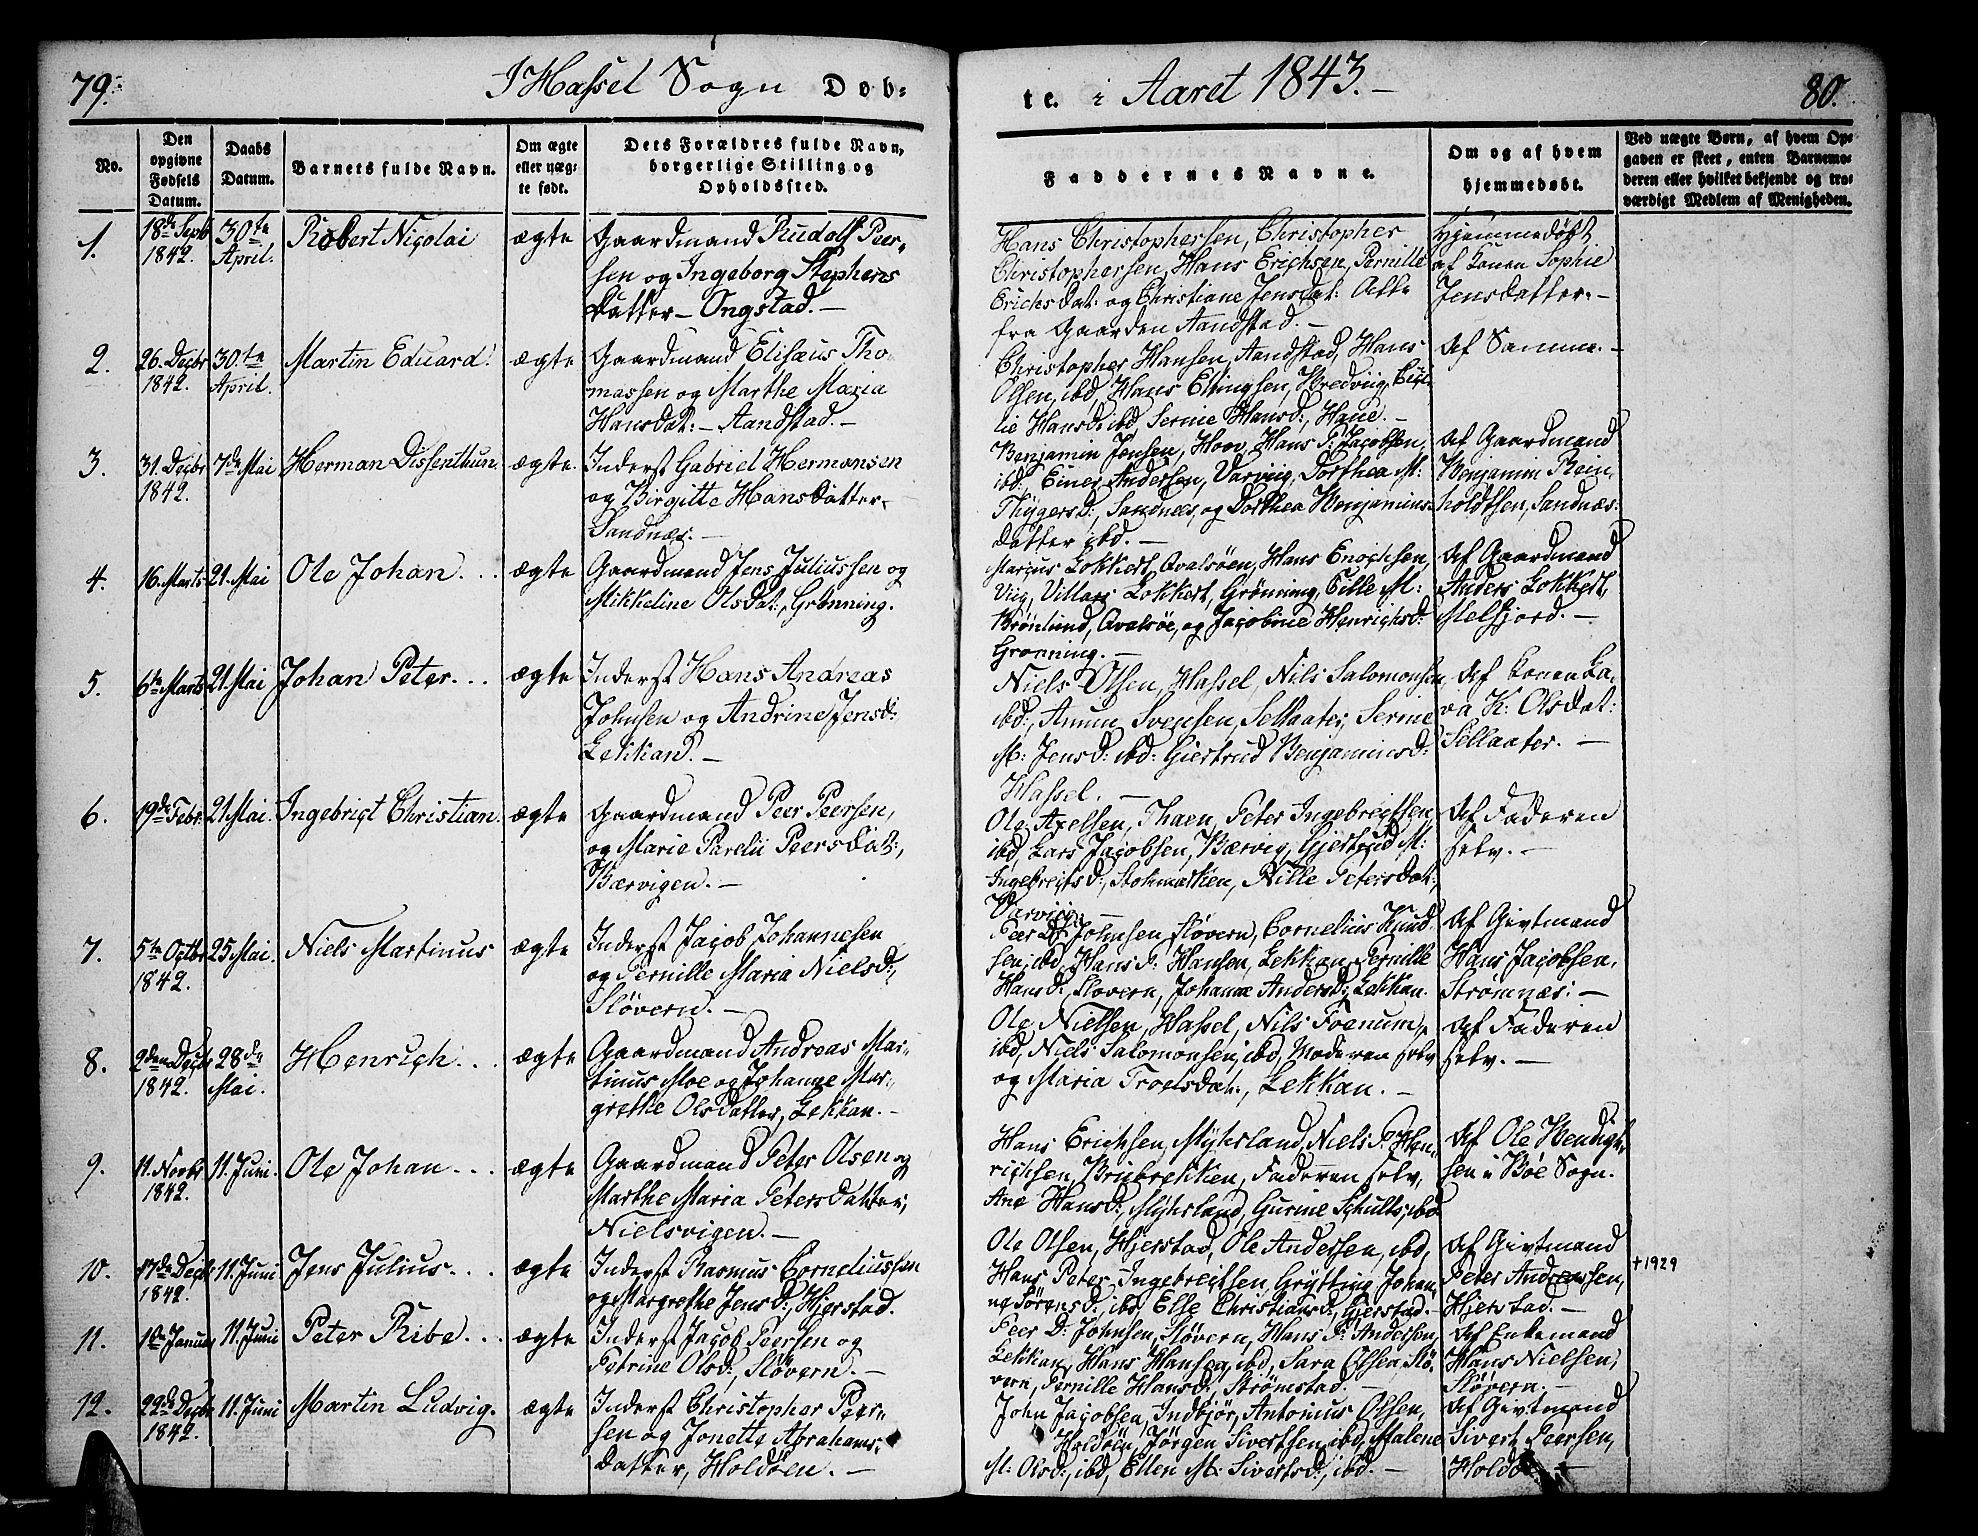 79.
I Hassel Sogn Døb-
No.
Den opgivne Fødsels Datum.
Daabs Datum.
Barnets fulde Navn.
Om ægte eller uægte født.
Dets Forældres fulde Navn, borgerlige Stilling og Opholdssted.
1.
18de Septb 1842.
30te April.
Robert Nicolai
ægte
Gaardmand Rudolf Peer-
sen og Ingeborg Stephens
datter - Ongstad. -
2.
26. Decbr 1842.
30te April.
Martin Eduard.
ægte
Gaardmand Elisæus Tho-
massen og Marthe Maria
Hansdat: - Aandstad. -
3.
31. Decbr 1842.
7de Mai
Herman Dissenthun.
ægte.
Inderst Gabriel Hermansen
og Birgitte Hansdatter,
Sandnæs. -
4.
16. Marts
21. Mai
Ole Johan. . .
ægte
Gaardmand Jens Juliussen og
Mikkeline Olsdat:, Grønning.
5.
6te Marts
21. Mai
Johan Peter. . .
ægte
Inderst Hans Andreas
Johnsen og Andrine Jensd:
Lekkand. -
6.
19de Febr.
21 Mai.
Ingebrigt Christian.
ægte
Gaardmand Peer Peersen,
og Marie Parelii Peersdat:,
Bærvigen. -
7.
5te Octbr 1842.
25 Mai.
Niels Martinus
ægte
Inderst Jacob Johannesen
og Pernille Maria Nielsd:,
Sløvern. -
8.
2den Decb 1842.
28de Mai.
Henrich. . .
ægte
Gaardmand Andreas Mar-
tinus Moe og Johanne Mar-
grethe Olsdatter, Lekkan. -
9.
11. Novbr 1842.
11. Juni.
Ole Johan. . .
ægte
Gaardmand Peter Olsen og
Marthe Maria Petersdatter,
Nielsvigen. -
10.
17de Decb 1842.
11. Juni
Jens Julius. . .
ægte
Inderst Rasmus Corneliussen
og Margrethe Jensd:, Hjerstad.
11.
1te Januar
11. Juni
Peter Ribe. . .
ægte
Inderst Jacob Peersen og
Petrine Olsd:, Sløvern. -
12.
22de Decbr 1842.
11. Juni
Martin Ludvig.
ægte
Inderst Christopher Peer-
sen og Jonette Abrahams-
datter, Holdøen. -
te. i Aaret 1843. -
80.
Faddernes Navne.
Om og af hvem hjemmedøbt.
Ved uægte Børn, af hvem Op-
gaven er skeet, enten Barnemo-
deren eller hvilket bekjendt og tro-
værdigt Medlem af Menigheden.
Hans Christophersen, Christopher
Christophersen, Hans Erichsen, Pernille
Erichsdat: og Christiane Jensdat: Alle
fra Gaarden Aandstad. -
Hjemmedøbt
af Konen Sophie
Jensdatter. -
Christopher Hansen, Aandstad, Hans
Olsen, ibd, Hans Elingsen, Bredviig, Cicil-
lie Hansd: ibd, Serine Hansd:, Haue. -
Af Samme. -
Benjamin Jensen, Hoov, Hans P: Jacobsen
ibd:, Einer Andersen, Varviig, Dorthea M:
Thygersd:, Sandnes, og Dorthea Benjamins-
datter ibd. -
Af Gaardmand
Benjamin Rein-
holdtsen, Sandnæs:
Marcus Lokkert, Qvalsøen, Hans Enochsen,
Viig, Villars Lokkert, Grønning, Cille M:
Brønlund, Qvalsøe, og Jacobine Henrichsd:
Grønning. -
Af Gaardmand
Anders Lokkert,
Melfjord. -
Niels Olsen, Hassel, Nils Salomonsen,
ibd:, Amun Svensen, Sellaater, Serine
M: Jensd: ibd: Giertrud Benjaminsd:
Hassel. -
Af Konen La-
va K: Olsdat:
Sellaater. -
Ole Axelsen, Thaen, Peter Ingebreitsen,
ibd, Lars Jacobsen, Bærvig, Gjertrud M:
Ingebreitsd:, Stokmarken, Nille Petersdat:,
Varviig. -
Af Faderen
selv. -
Peer D: Johnsen Sløvern, Cornelius Knud-
sen, ibd, Hans P: Hansen, Lekkan, Pernille
Hansd:, Sløvern, Johanne Andersd:, Lekkan.
Af Givtmand
Hans Jacobsen,
Strømnæs: -
Ole Nielsen, Hassel, Nils Foenum,
ibd, Niels Salomonsen, ibd, Moderen selv
og Maria Troelsdat:, Lekkan. -
Af Faderen
selv. -
Hans Erichsen, Myhrland, Niels P. Hen-
richsen, Breibrekken, Faderen selv,
Ane Hansd:, Myhrland, Gurine Schults, ibd
Af Ole Bendigt-
sen i Bøe Sogn.
Ole Olsen, Hjerstad, Ole Andersen, ibd,
Hans Peter Ingebreitsen, Grytting, Johan-
ne Sørensd:, ibd, Else Christiansd:, Hjerstad. -
Af Givtmand
Peter Andreassen,
Hjerstad. -
+ 1929
Peer D: Johnsen, Sløvern, Hans P: Andersen,
Lekkan, Hans Hansen, ibd, Sara Olsen, Slø-
vern, Pernille Hansd:, Strømstad. -
Af Enkemand
Hans Nielsen,
Sløvern. -
John Jacobsen, Indbjør, Antonius Olsen,
Holdøen, Jørgen Sivertsen, ibd, Malene
M: Olsd:, ibd, Ellen M: Sivertsd:, ibd. -
Af Givtmand
Sivert Peersen,